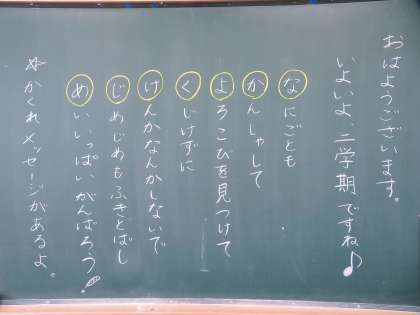 おはようございます。
いよいよ、二学期ですね♪
なにごとも
かんしゃして
よろこびを見つけて
くじけずに
けんかなんかしないで
じめじめもふきとばし
めいいっぱいがんばろう!
☆かくれメッセージがあるよ。